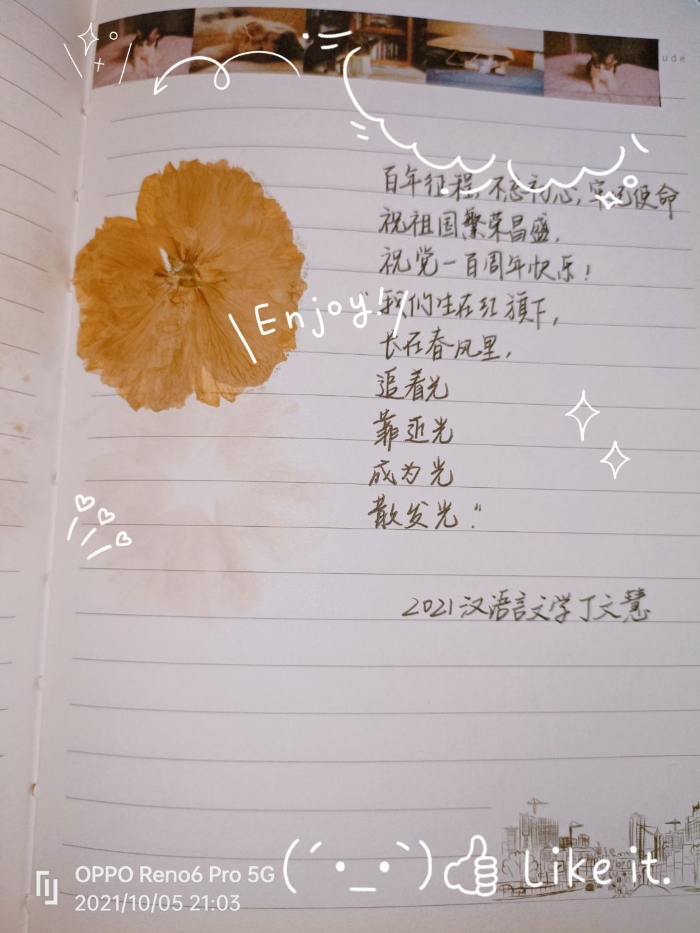 ude
百年征程,不忘初心,牢记使命
祝祖国繁荣昌盛,
祝党一百周年快乐!
Enjoy!
“我们生在红旗下,
长在春风里,
追着光
靠近光
成为光
散发光”
2021汉语言文学丁文慧
Like it.
OPPO Reno6 Pro 5G
2021/10/05 21:03